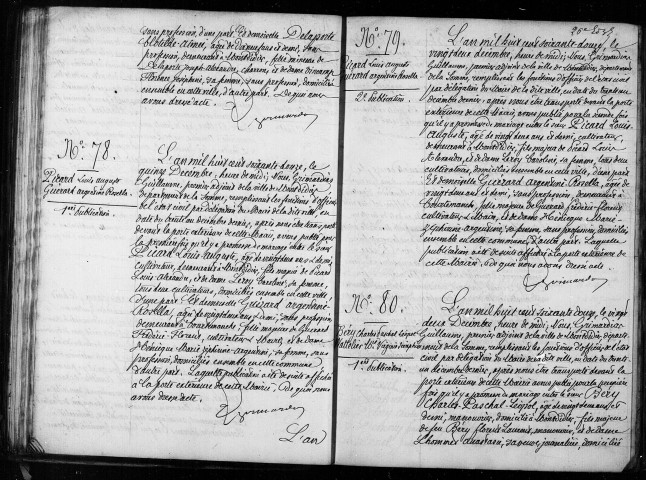 sans profession, d'une part. Et demoiselle Delaporte
sans
profession, demeurant à Montdidier, fille mineure de
Delaporte Joseph Alexandre, charron, et de dame
Joséphine, sa femme, sans profession, domiciliés
ensemble en cette ville, d'autre part. De quoi nous
avons dressé acte.
Grimardon
No. 78.
Picard Louis auguste
Guérard argentine Rosella.
1ère publication.
L'an mil huit cent soixante douze, le
quinze Décembre, heure de midi; Nous, Grimardon
Guillaume, premier adjoint de la ville de Montdidier,
département de la Somme, remplissant les fonctions d'officier
de l'état civil par délégation du Maire de la dite ville, en
date du trente un décembre dernier, après nous être transporté
devant la porte extérieure de cette Mairie, avons publié pour
la première fois qu'il y a promesse de mariage entre le sieur
Picard Louis Auguste, âgé de vingt deux ans et demi,
cultivateur, demeurant à Montdidier, fils majeur de Picard
Louis Alexandre, et de dame Leroy Caroline, sa femme,
tous deux cultivateurs, domiciliés ensemble en cette ville
d'une part. Et demoiselle Guérard argentine
Rosella, âgée de vingt ans et demi, sans profession
demeurant à Courtemanche, fille majeure de Guérard
Frédéric Florent, cultivateur et Maire, et de dame
Hédicque Marie Zéphirine argentine, sa femme, sans
profession, domiciliés ensemble en cette commune
d'autre part. Laquelle publication a été de suite affichée
à la porte extérieure de cette Mairie. De quoi nous
avons dressé acte.
Grimardon
L'an
No. 79.
Picard Louis auguste
Guérard argentine Rosella
2e publication.
L'an mil huit cent soixante douze, le
vingt deux Décembre, heure de midi; Nous, Grimardon
Guillaume, premier adjoint de la ville de Montdidier, département
de la Somme, remplissant les fonctions d'officier de l'état civil
par délégation du Maire de la dite ville, en date du trente un
décembre dernier, après nous être transporté devant la porte
extérieure de cette Mairie, avons publié pour la seconde fois
qu'il y a promesse de mariage entre le sieur Picard Louis
Auguste, âgé de vingt deux ans et demi, cultivateur,
demeurant à Montdidier, fils majeur de Picard Louis
Alexandre, et de dame Leroy Caroline, sa femme, tous deux
cultivateurs, domiciliés ensemble en cette ville, d'une part
Et demoiselle Guérard argentine Rosella, âgée de
vingt ans et demi, sans profession, demeurant à
Courtemanche, fille majeure de Guérard Frédéric Florent
cultivateur et Maire, et de dame Hédicque Marie
Zéphirine argentine, sa femme, sans profession, domiciliés
ensemble en cette commune, d'autre part. Laquelle
publication a été de suite affichée à la porte extérieure de
cette Mairie. De quoi nous avons dressé acte.
Grimardon
No. 80.
Béry Charles Paschal Léopold
1ère publication.
L'an mil huit cent soixante douze, le vingt
deux Décembre, heure de midi; Nous, Grimardon
Guillaume, premier adjoint de la ville de Montdidier, département
de la Somme, remplissant les fonctions d'officier de l'état
civil par délégation du Maire de cette ville, en date du trente
un décembre dernier, après nous être transporté devant la
porte extérieure de cette Mairie avons publié pour la première
fois qu'il y a promesse de mariage entre le sieur Béry
Charles Paschal Léopold, âgé de vingt
demi, manouvrier, domicilié à Montdidier, fils majeur
de feu Béry Florent Laurent, manouvrier, et de dame
Lhommée Anastasie, sa veuve, journalière, domiciliée